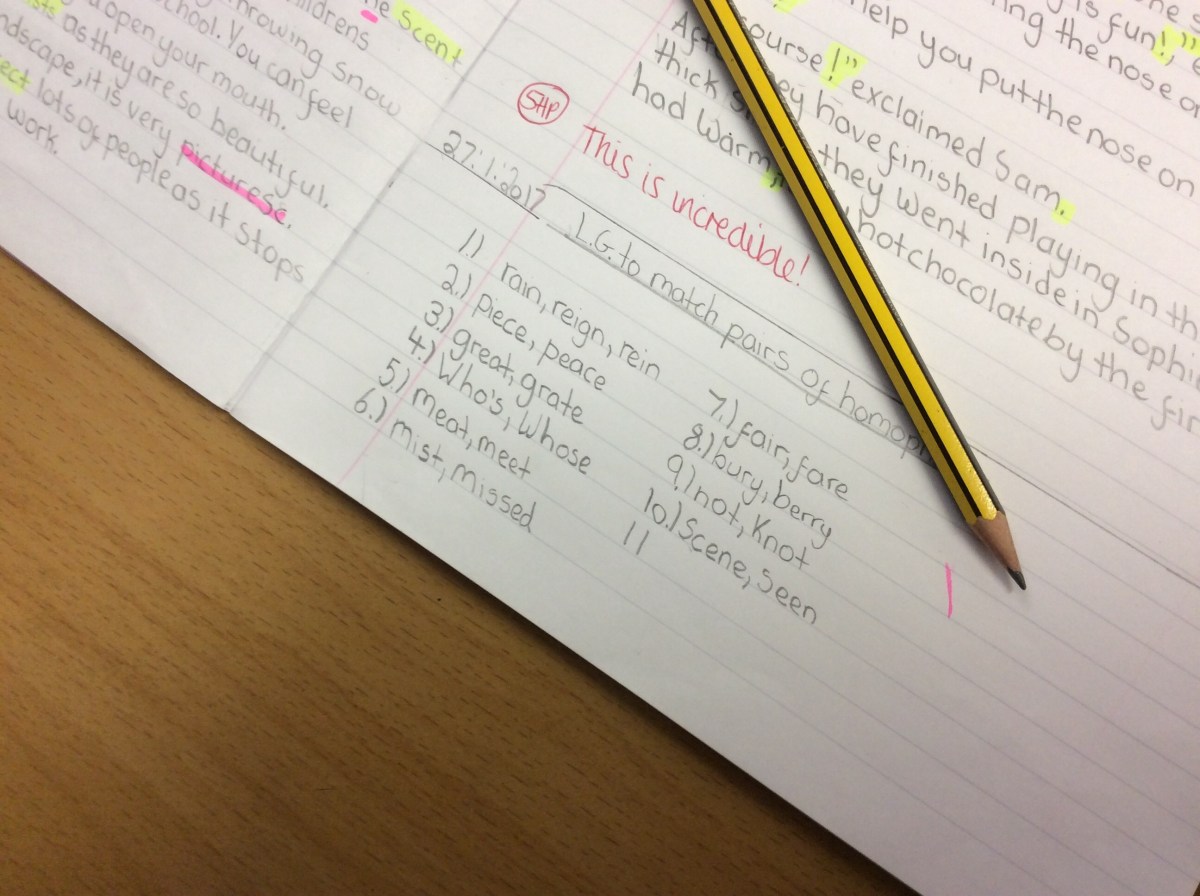 e scent
childrens
throwing snow
school. You can feel
open your mouth.
as they are so beautiful.
it is very picturese.
lots of people as it stops
work.
help you put the nose on
ourse!" exclaimed Sam.
they have finished playing in
thick they went inside in
had warm hot chocolate by the
5HP
This is incredible!
27.1.2017
L.G. to match pairs of
1.) rain, reign, rein
2.) piece, peace
3.) great, grate
4.) Who's, Whose
5.) meat, meet
6.) mist, missed
7.) fair, fare
8.) bury, berry
9.) not, Knot
10.) Scene, Seen
11